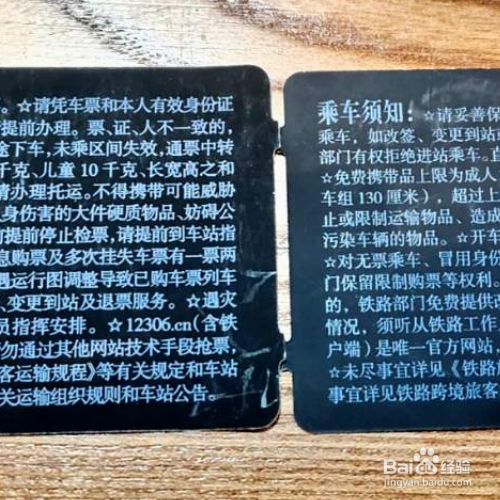 。☆请凭车票和本人有效身份证
提前办理。票、证、人不一致的，
途下车，未乘区间失效，通票中转
千克、儿童10千克，长宽高之和
请办理托运。不得携带可能威胁
人身伤害的大件硬质物品、妨碍公
前提前停止检票，请提前到车站指
息购票及多次挂失车票有一票两
遇运行图调整导致已购车票列车
、变更到站及退票服务。☆遇灾
员指挥安排。☆12306.cn(含铁
勿通过其他网站技术手段抢票，
客运输规程》等有关规定和车站
关运输组织规则和车站公告。
乘车须知：☆请妥善保
乘车，如改签、变更到站
部门有权拒绝进站乘车。
☆免费携带品上限为成人
车组130厘米)，超过上
止或限制运输物品、造成
污染车辆的物品。☆开车
☆对无票乘车、冒用身份
门保留限制购票等权利。
的，铁路部门免费提供
情况，须听从铁路工作
户端）是唯一官方网站，
☆未尽事宜详见《铁路旅
事宜详见铁路跨境旅客
Baidu经验
jingyan.baidu.com